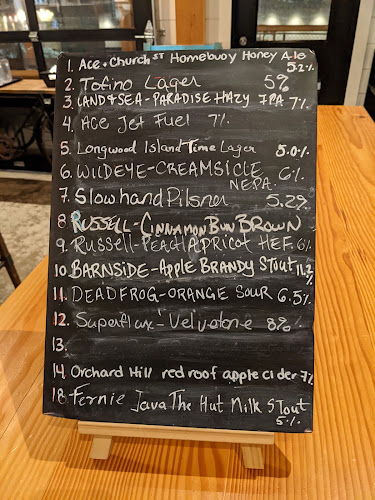 1. Ace + Church ST Homebuoy Honey Ale 5.2%
2. Tofino Lager 5%
3 LAND & SEA - PARADISE HAZY IPA 7%
4. Ace Jet Fuel 7%
5. Longwood Island Time Lager 5.0%
6. WILDEYE - CREAMSICLE NEPA 6%
7. Slowhand Pilsner 5.2%
8 RUSSELL - CINNAMON BUN BROWN
9. Russell - PEACH APRICOT HEF. 6%
10 BARNSIDE - APPLE BRANDY STOUT 11.2%
11. DEADFROG - ORANGE SOUR 6.5%
12. Superflux - Velvetone 8%
13.
14. Orchard Hill red roof apple cider 7%
18. Fernie Java The Hut Milk STout 5%